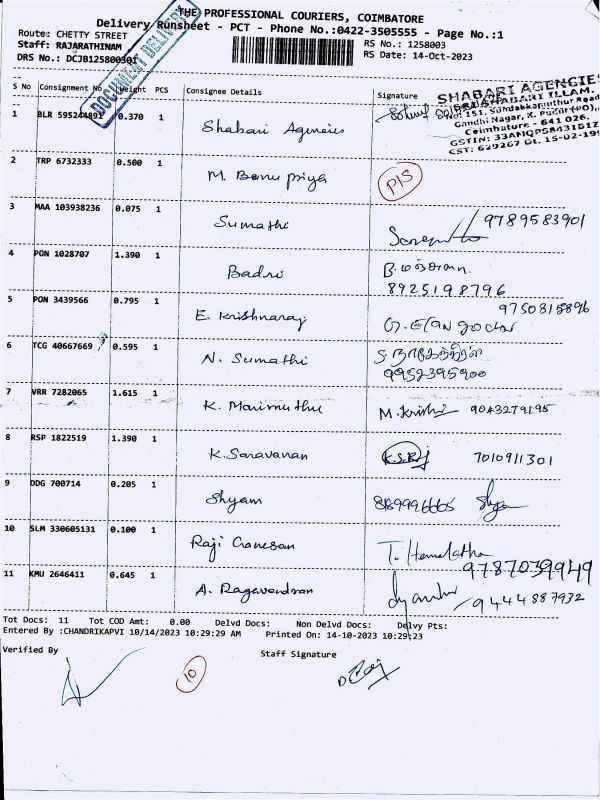 THE PROFESSIONAL COURIERS, COIMBATORE
Delivery Runsheet - PCT - Phone No.:0422-3505555 - Page No.:1
Route: CHETTY STREET
RS No.: 1258003
Staff: RAJARATHINAM
RS Date: 14-Oct-2023
DRS No.: DCJB125800301
DOCUMENT DELIVERY
S No Consignment No Weight PCS Consignee Details Signature
SHABARI AGENCIES
SRI SHABARI ILLAM,
No. 151, Sundakkamuthur Road
Gandhi Nagar, K. Pudur (PO),
Coimbatore - 641 026.
1 BLR 595244891 0.370 1 Shabari Agencies
2 TRP 6732333 0.500 1 M. Banu Priya P/S
3 MAA 103938236 0.075 1 Sumathi 9789583901
4 PON 1028707 1.390 1 Badri
8925198796
5 PON 3439566 0.795 1 E. Krishnaraj 9750815896
6 TCG 40667669 0.595 1 N. Sumathi
9952395900
7 VRR 7282065 1.615 1 K. Marimuthu M. Krishi 9043279195
8 RSP 1822519 1.390 1 K. Saravanan K.S.R 7010911301
9 DDG 700714 0.205 1 Shyam Shya
10 SLM 330605131 0.100 1 Raji Ganesan T. Hemalatha
9787039949
11 KMU 2646411 0.645 1 A. Ragavendran 9444887932
Tot Docs: 11 Tot COD Amt: 0.00 Delvd Docs: Non Delvd Docs: Delvy Pts:
Entered By :CHANDRIKAPVI 10/14/2023 10:29:29 AM Printed On: 14-10-2023 10:29:23
Verified By Staff Signature
10